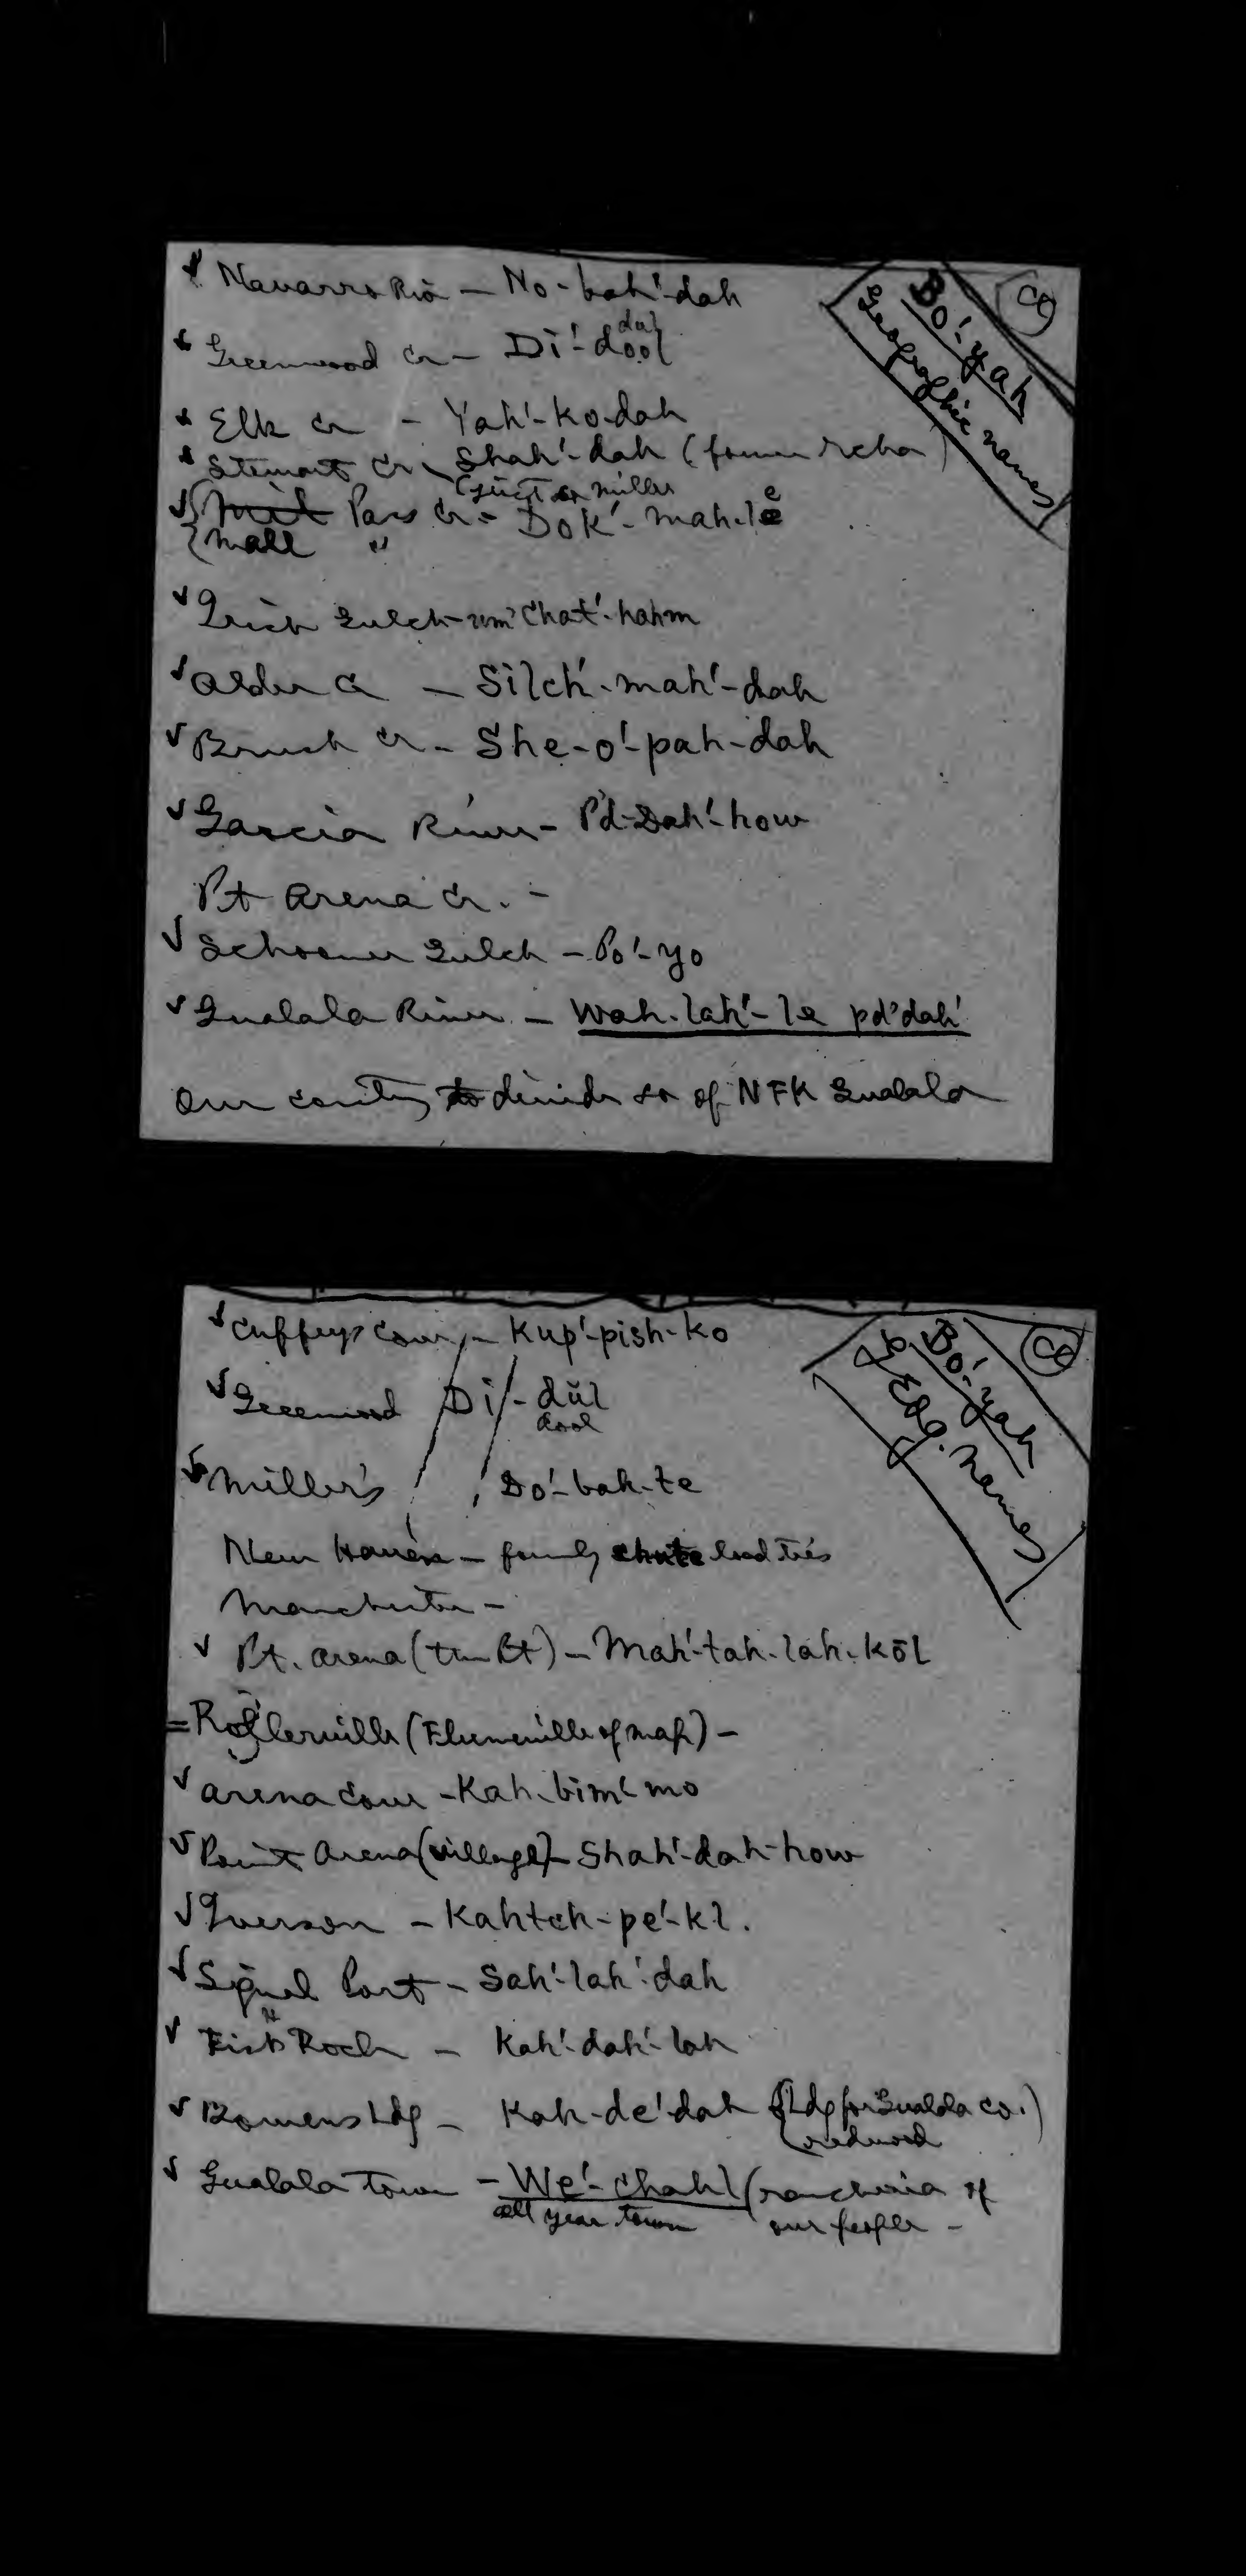 Co
Bo'-yah
Geographic names
✓ Navarro Riv — No-bah'-dah
dul
✓ Greenwood Cr — Di'-dool
✓ Elk Cr — Yah'-ko-dah
✓ Stewart Cr — Shah'-dah (former rcha)
(just so Millers
✓ { Mill Pass Cr. — Dok'-mah-le
{ Mall "
✓ Irish Gulch - um' chat'-hahm
✓ Alder Cr — Silch'-mah'-dah
✓ Brush Cr — She-o'-pah-dah
✓ Garcia River — P'd-Dah'-how
Pt Arena Cr. —
✓ Schooner Gulch — Po'-yo
✓ Gualala River — Wah-lah'-le pd'dah'
Our country to divide so of N Fk Gualala
Co
Bo'-yah
Geog. names
✓ Cuffeys Cove — Kup'-pish-ko
✓ Greenwood Di'-dŭl
dool
✓ Miller's Do'-bah-te
New Haven — formerly chute load ties
Manchester —
✓ Pt. Arena (the Pt) — Mah'-tah-lah-kōl
= Rollerville (Flumeville of map) —
✓ Arena Cove — Kah-bim'-mo
✓ Point Arena (village) — Shah'-dah-how
✓ Iverson — Kahtch-pe'-kl.
✓ Signal Port — Sah'-lah'-dah
✓ Fish Rock — Kah'-dah'-lah
✓ Bowens Ldg — Kah-de'dah (Ldg for Gualala Co.)
(redwood
✓ Gualala Town — We'-chahl (rancheria of
all year town our people —